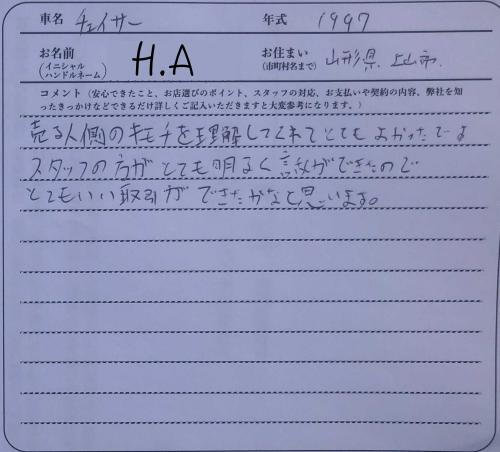 車名 チェイサー 年式 1997
お名前 (イニシャル ハンドルネーム) H.A お住まい (市町村名まで) 山形県 上山市.
コメント（安心できたこと、お店選びのポイント、スタッフの対応、お支払いや契約の内容、弊社を知
ったきっかけなどできるだけ詳しくご記入いただきますと大変参考になります。）
売る人側のキモチを理解してくれてとてもよかったです
スタッフの方がとても明るく会話ができたので
とてもいい取引ができたかなと思います。